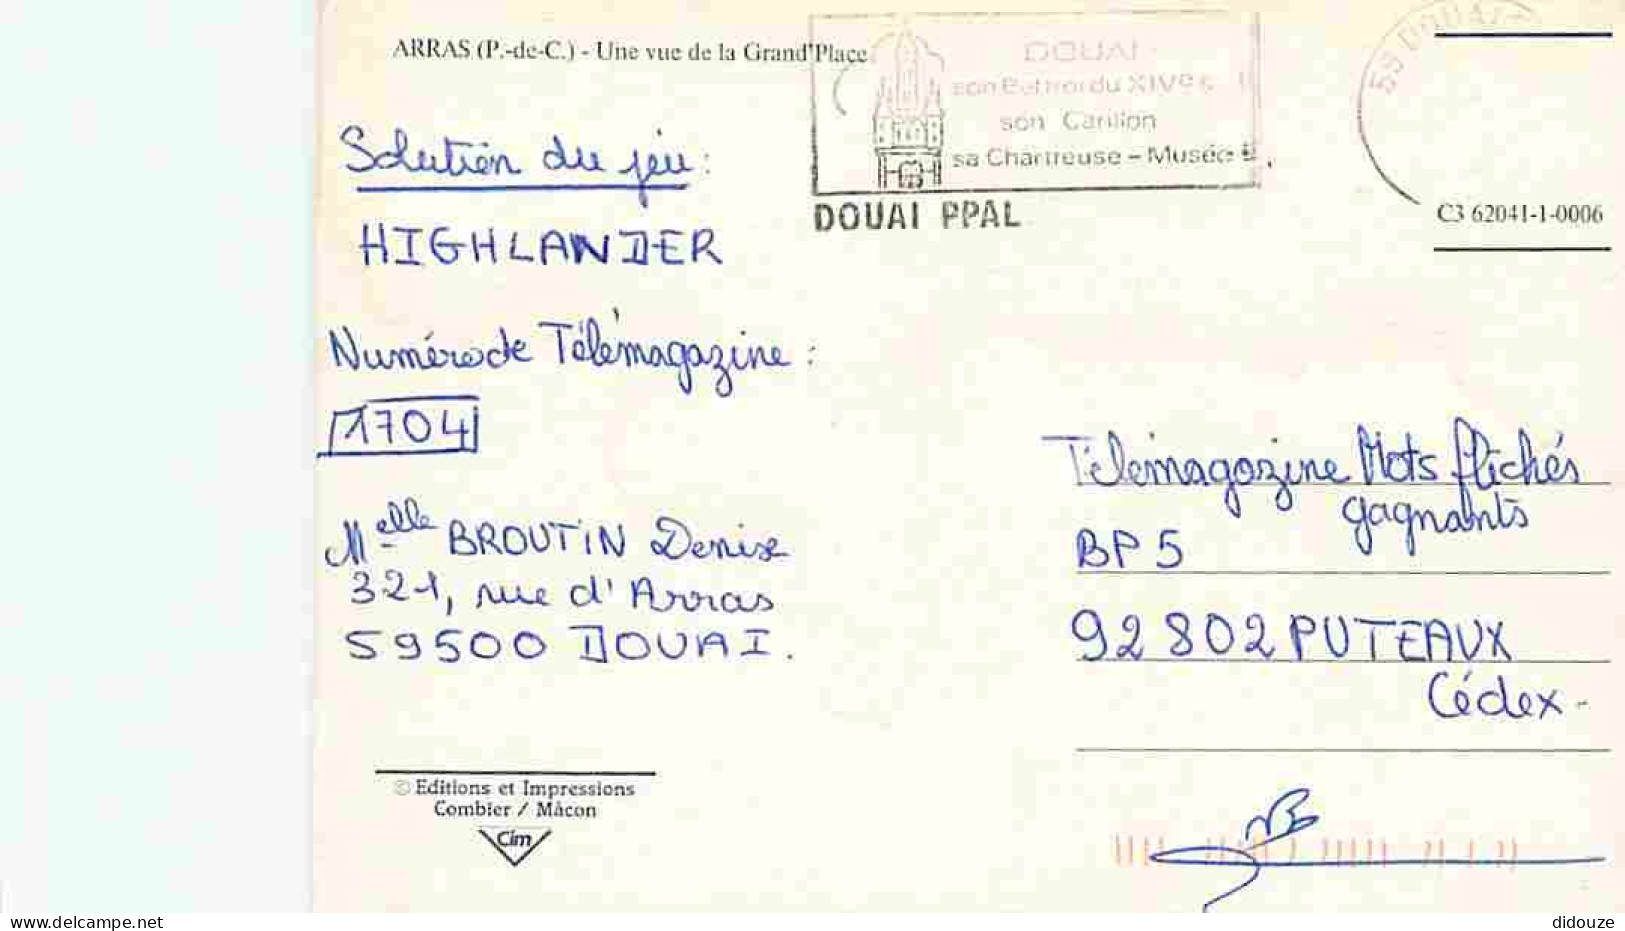 ARRAS (P.-de-C.) - Une vue de la Grand'Place
DOUAI
son Beffroi du XIVe s
son Carillon
sa Chartreuse - Musée
DOUAI PPAL
59 DOUAI
C3 62041-1-0006
Solution du jeu :
HIGHLANDER
Numéro de Télémagazine :
1704
Melle BROUTIN Denise
321, rue d'Arras
59500 DOUAI.
Télémagazine Mots fléchés
gagnants
BP 5
92802 PUTEAUX
Cédex -
© Editions et Impressions
Combier / Mâcon
Cim
www.delcampe.net
didouze